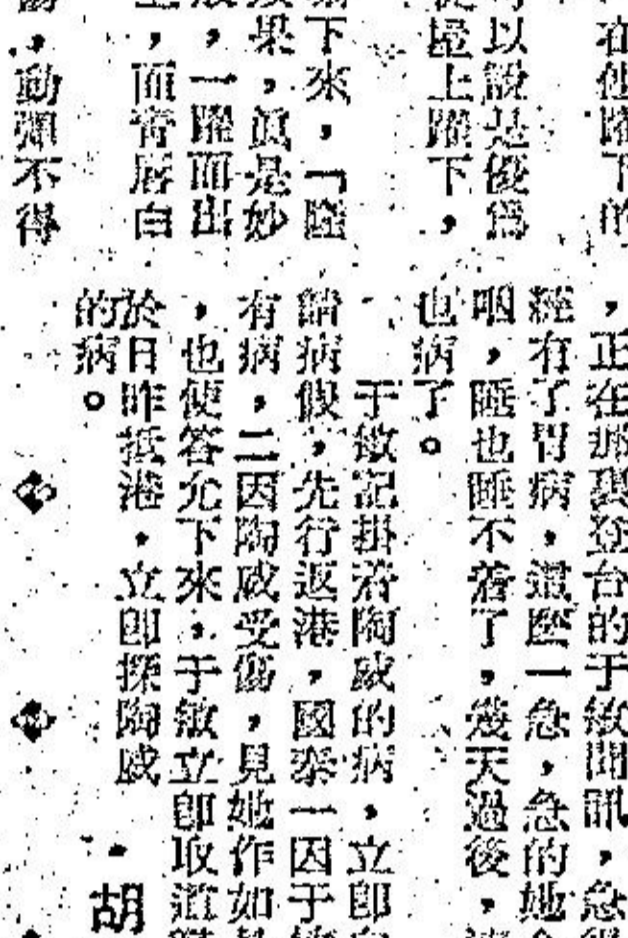 在他躍下的
可以說是優爲
從屋上躍下，
下來，「陸
果，眞是妙
，一躍而出
，面靑唇白
，動彈不得
，正在班裏登台的于敏聞訊，急得
經有了胃病，這麼一急，急的她
咽，睡也睡不着了，幾天過後，
也病了。
于敏記掛着陶威的病，立卽向
請病假，先行返港，國泰一因于敏
有病，二因陶威受傷，見她作如
，也便答允下來，于敏立卽取道
於日昨抵港，立卽探陶威
的病。
胡